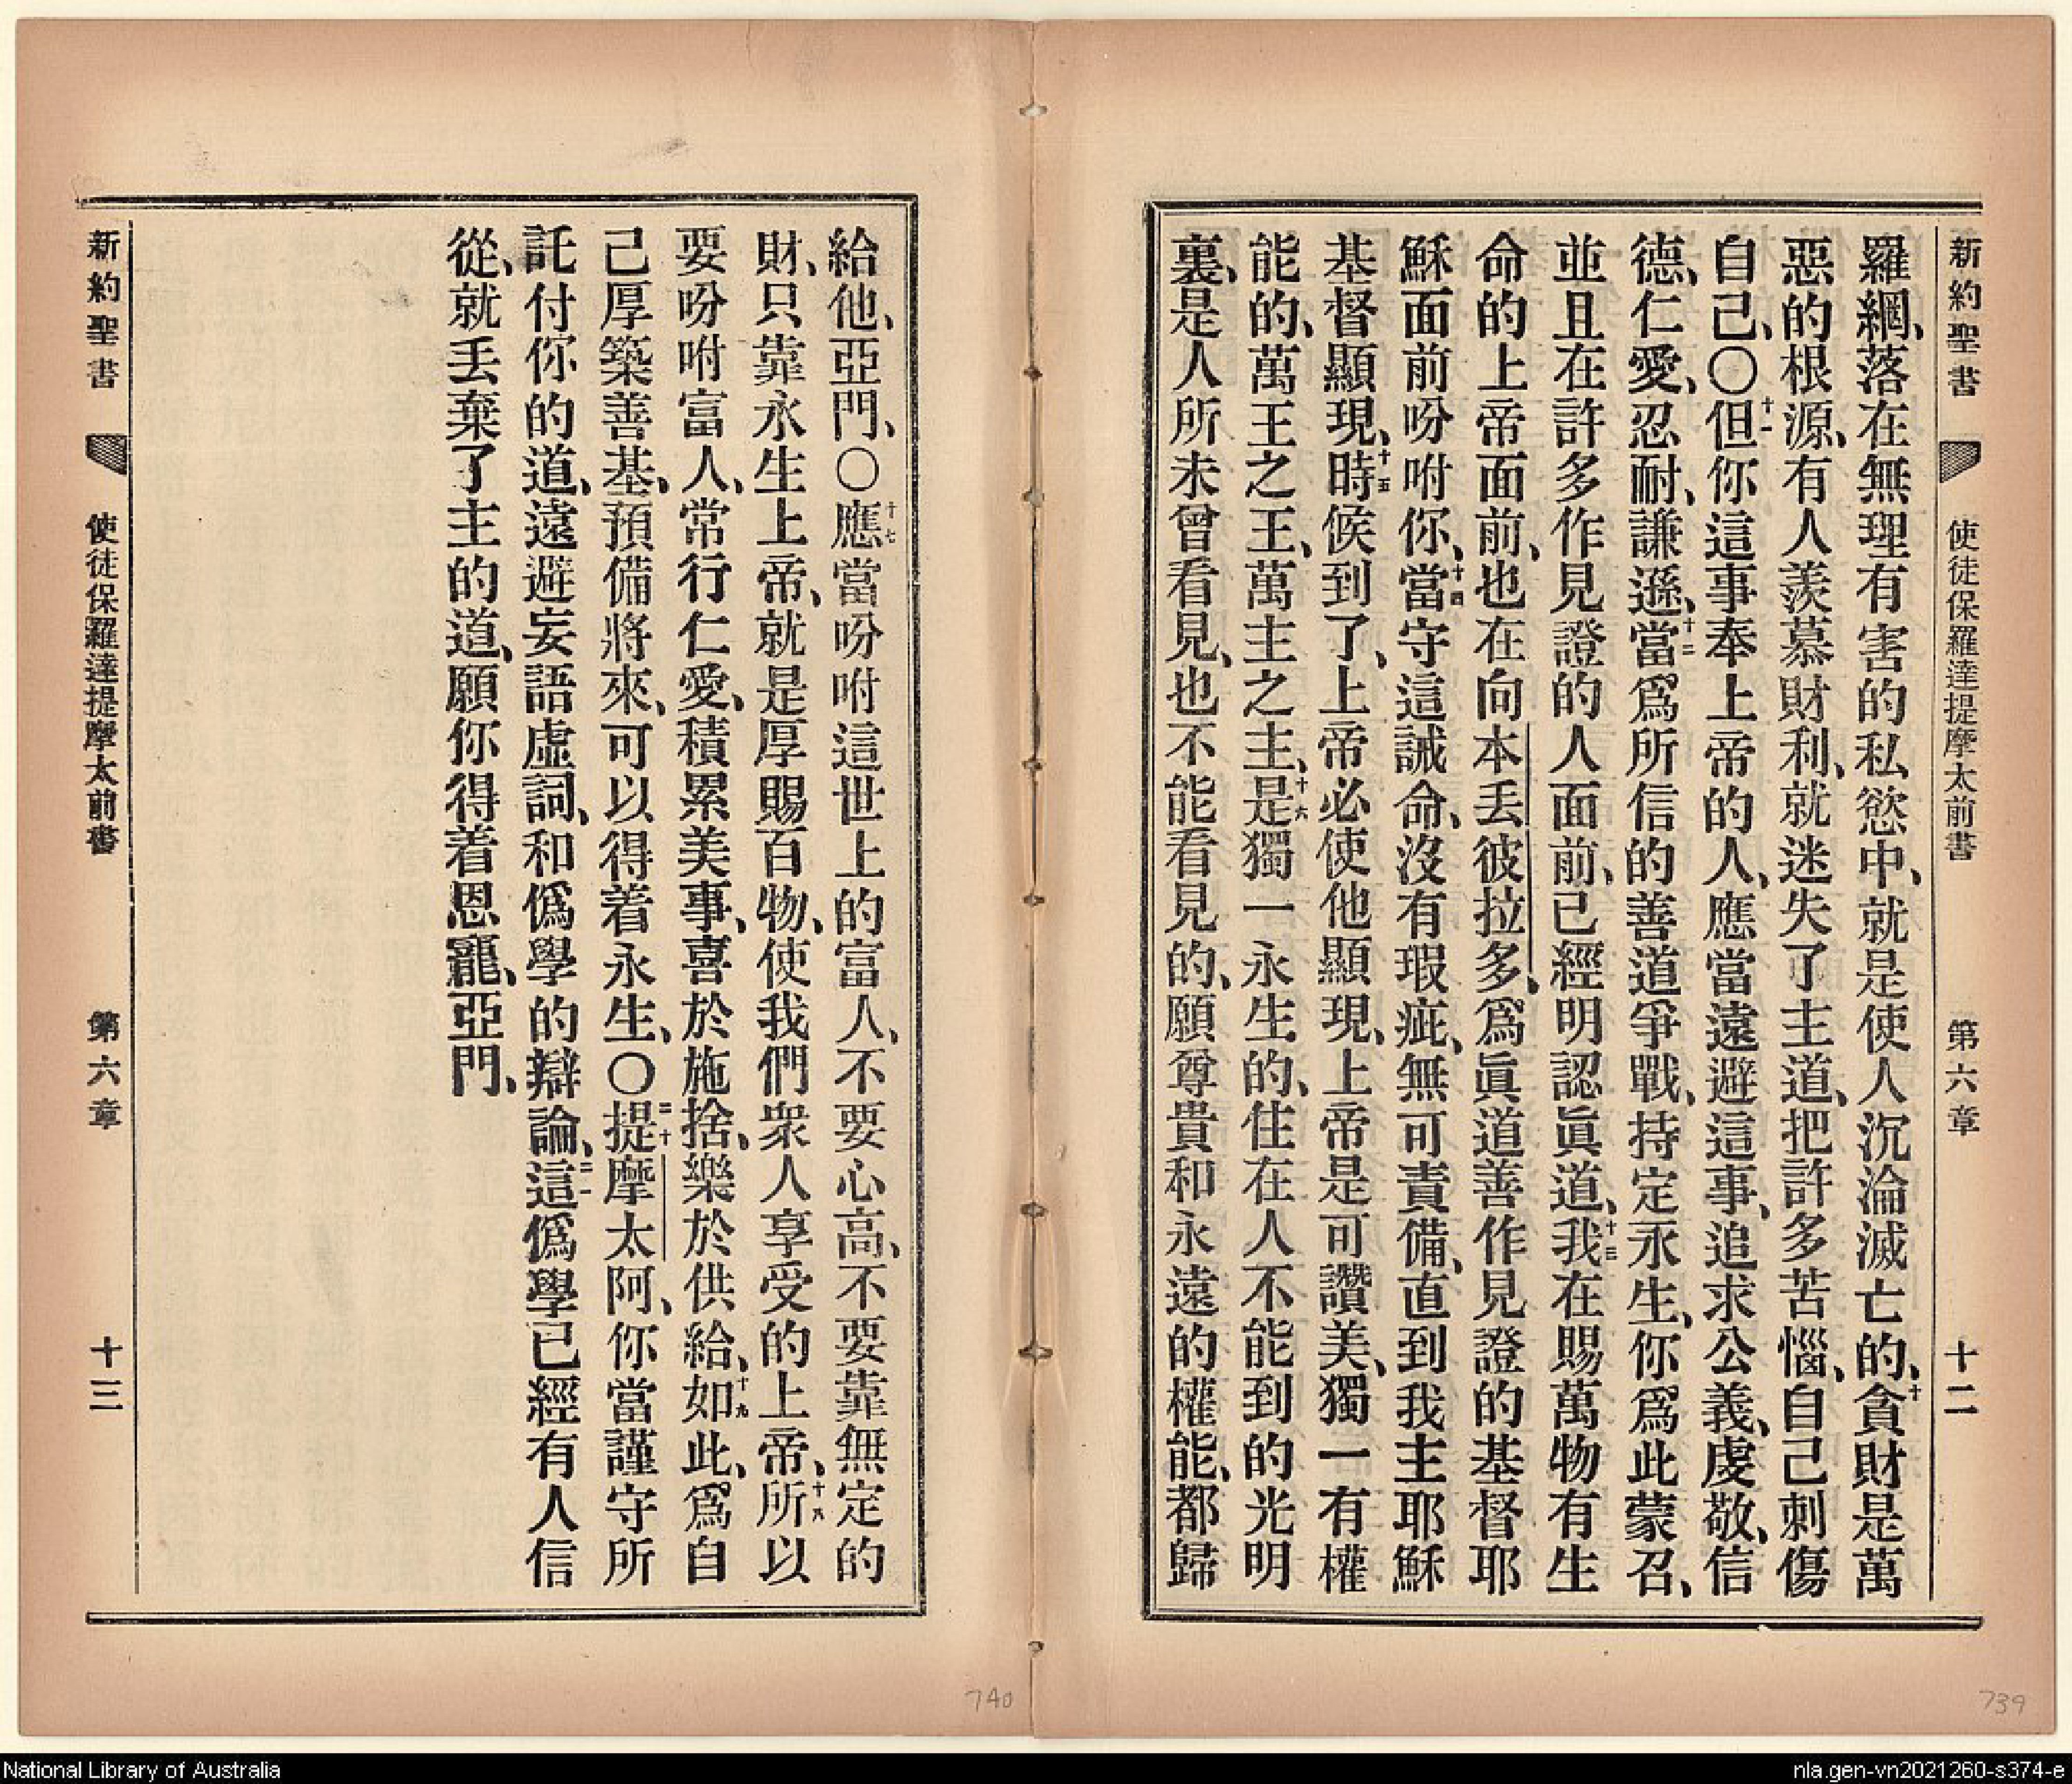 新約聖書 使徒保羅達提摩太前書 第六章 十二
羅網、落在無理有害的私慾中、就是使人沉淪滅亡的、十貪財是萬
惡的根源、有人羨慕財利、就迷失了主道、把許多苦惱、自己刺傷
自己、〇十一但你這事奉上帝的人、應當遠避這事、追求公義、虔敬、信
德、仁愛、忍耐、謙遜、十二當爲所信的善道爭戰、持定永生、你爲此蒙召、
並且在許多作見證的人面前、已經明認眞道、十三我在賜萬物有生
命的上帝面前、也在向本丟彼拉多、爲眞道善作見證的基督耶
穌面前吩咐你、十四當守這誡命、沒有瑕疵、無可責備、直到我主耶穌
基督顯現、十五時候到了、上帝必使他顯現、上帝是可讚美、獨一有權
能的、萬王之王、萬主之主、十六是獨一永生的、住在人不能到的光明
裏、是人所未曾看見、也不能看見的、願尊貴和永遠的權能、都歸
給他、亞門、〇十七應當吩咐這世上的富人、不要心高、不要靠無定的
財、只靠永生上帝、就是厚賜百物、使我們衆人享受的上帝、十八所以
要吩咐富人、常行仁愛、積累美事、喜於施捨、樂於供給、十九如此、爲自
己厚築善基、預備將來、可以得着永生、〇二十提摩太阿、你當謹守所
託付你的道、遠避妄語虛詞、和僞學的辯論、二一這僞學已經有人信
從、就丟棄了主的道、願你得着恩寵、亞門、
新約聖書 使徒保羅達提摩太前書 第六章 十三
740
739
National Library of Australia
nla.gen-vn2021260-s374-e